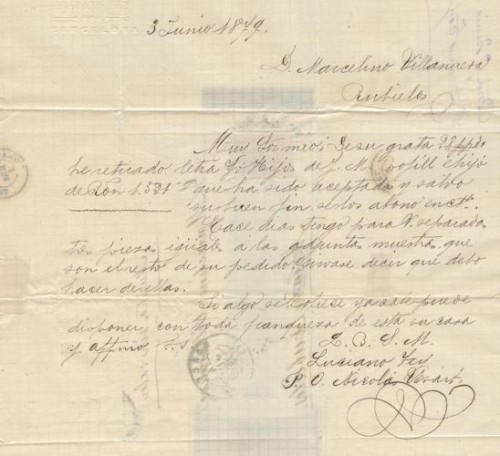 3 Junio 1879.
D. Marcelino Villanueva
Rubielos
Muy Sor mio: De su grata 28 ppdo
he retirado letra g/ Hijos de J. M. Bofill e hijo
de Ron 1.531 " que ha sido aceptada y salvo
su buen fin, se los abono en cta
Hace dias tengo para V. separadas
tres piezas iguales a las adjuntas muestras que
son el resto de su pedido. Sirvase decir que debo
hacer de ellas.
Si algo se le ofrece ya sabe puede
disponer con toda franqueza de esta su casa
y affmo S. S.
Q. B. S. M.
Luciano
P. O. Nicolás